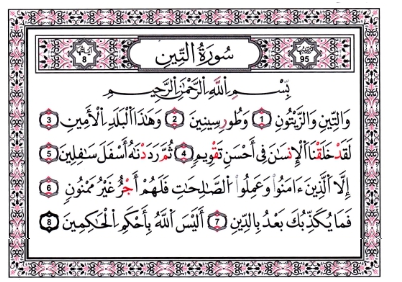 سُورَةُ التِّينِ
95
8
بِسْمِ اللَّهِ الرَّحْمَٰنِ الرَّحِيمِ
وَالتِّينِ وَالزَّيْتُونِ ١ وَطُورِ سِينِينَ ٢ وَهَٰذَا الْبَلَدِ الْأَمِينِ ٣
لَقَدْ خَلَقْنَا الْإِنسَانَ فِي أَحْسَنِ تَقْوِيمٍ ٤ ثُمَّ رَدَدْنَٰهُ أَسْفَلَ سَافِلِينَ ٥
إِلَّا الَّذِينَ ءَامَنُوا وَعَمِلُوا الصَّالِحَٰتِ فَلَهُمْ أَجْرٌ غَيْرُ مَمْنُونٍ ٦
فَمَا يُكَذِّبُكَ بَعْدُ بِالدِّينِ ٧ أَلَيْسَ اللَّهُ بِأَحْكَمِ الْحَٰكِمِينَ ٨